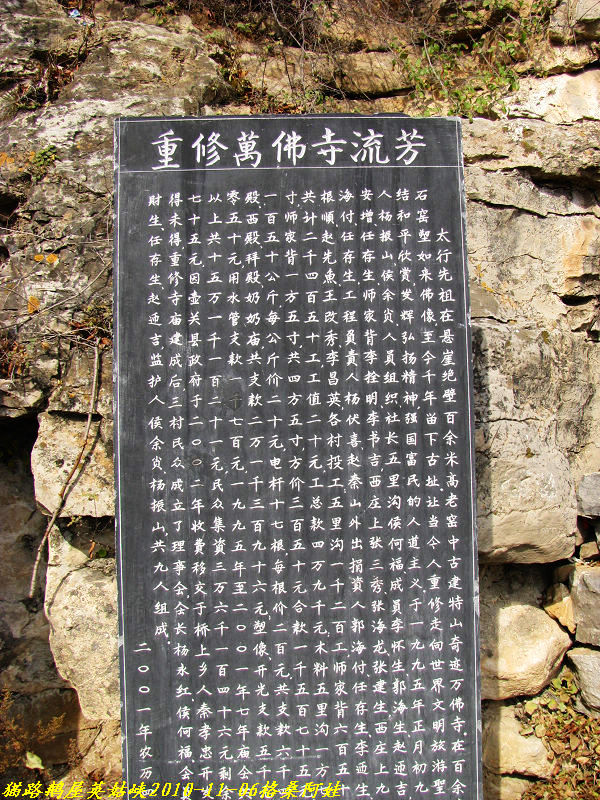 重修萬佛寺流芳
太行先祖在悬崖绝壁百余米高老窑中古建特山奇迹万佛寺.在百余
石窑塑如来佛像至今千年留下古址让当今人重修走向世界文明旅游聖
结和平欣赏.发辉弘扬精神强国富民的人道主义.于一九九五年正月初九
人杨振山侯余炭人员组织社长五里沟侯何福成員李怀生郭海生赵亟吉
安增任存生师家背李拴明李书吉西庄上张三秀张海龙张建生西庄上九
海付.任存生.工程負責人杨伏喜赵秦山外出捐資人郭海付任存生李亟生
根順赵先魚王改秀李昌英各村投工五里沟一千二百工.师家背六百五十
共计二千四百五十工工值二十元工总款四万九千元木料五里沟一方
寸师家背一方五寸.共四方五寸方价三百五十元合款一千五百七十五
一百五十公斤每公斤价二十元.电杆十七根.每根价二百元.共支款六千
殿.西殿.拜殿.奶奶庙共支款二万一千三百九十六元.塑像.开光支款五千
零五十元用水管支款一千七百元.一九九五年至二〇〇一年七年庙会
以上共十五万一千一百二十一元民众集資三万六千一百四十六元剩余
七十五元.因壶关县政府于二〇〇二年收費移交于桥上乡人秦孝忠开
得未得重修寺庙建成后三村民众成立了理事会.会长杨永红.侯何福会
财生.任存生.赵亟吉监护人侯余炭杨振山共九人组成.
二〇〇一年农万
2010 11 06格桑阿娃